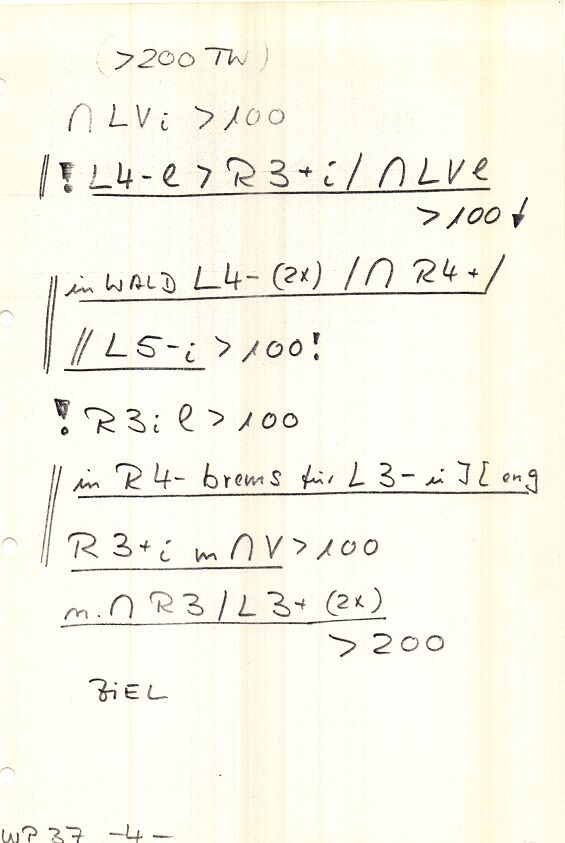 (>200 TW)
∩ LVi >100
! L4-l > R3+i / ∩ LVl
>100 ↓
in WALD L4- (2x) / ∩ R4+ /
// L5-i >100!
! R3i l >100
in R4- brems für L3- in ][ eng
R3+i m ∩ V >100
n. ∩ R3 / L3+ (2x)
>200
ZiEL
WP 37 -4-